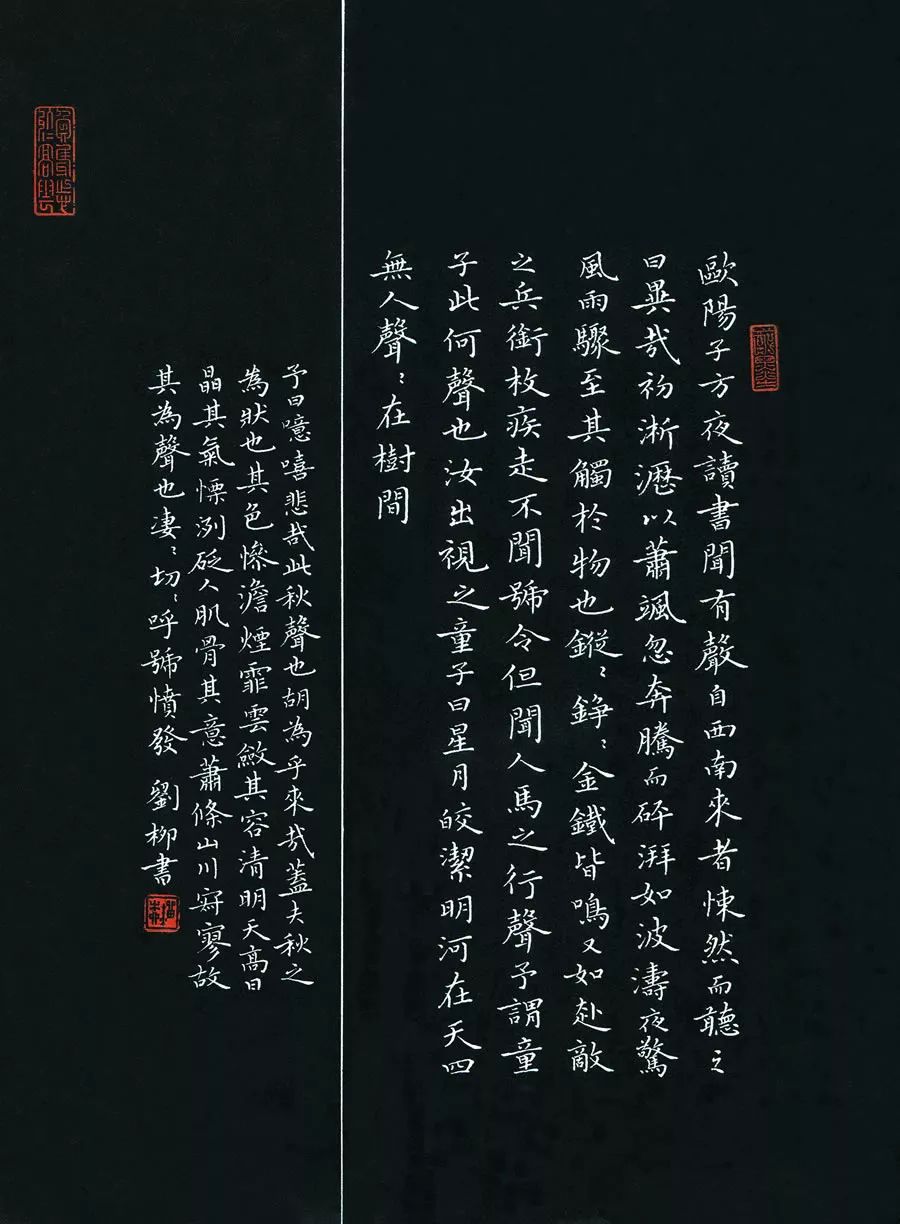 歐陽子方夜讀書聞有聲自西南來者悚然而聽之
曰異哉初淅瀝以蕭颯忽奔騰而砰湃如波濤夜驚
風雨驟至其觸於物也鏦〻錚〻金鐵皆鳴又如赴敵
之兵銜枚疾走不聞號令但聞人馬之行聲予謂童
子此何聲也汝出視之童子曰星月皎潔明河在天四
無人聲〻在樹間
予曰噫嘻悲哉此秋聲也胡為乎來哉蓋夫秋之
為狀也其色慘澹煙霏雲斂其容清明天高日
晶其氣慄冽砭人肌骨其意蕭條山川寂寥故
其為聲也淒〻切〻呼號憤發 劉柳書